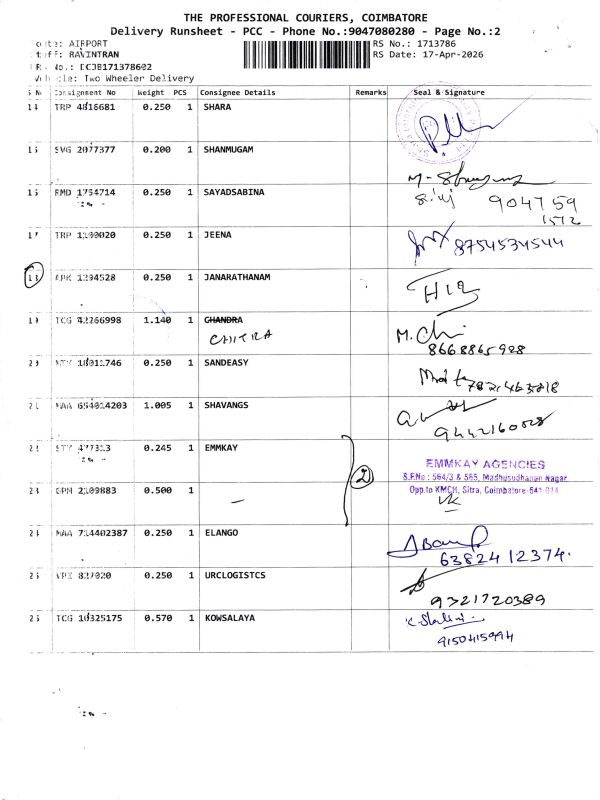 THE PROFESSIONAL COURIERS, COIMBATORE
Delivery Runsheet - PCC - Phone No.:9047080280 - Page No.:2
oute: AIRPORT RS No.: 1713786
taff: RAVINTRAN RS Date: 17-Apr-2026
R No.: DCJB171378602
Vehicle: Two Wheeler Delivery
S No Consignment No Weight PCS Consignee Details Remarks Seal & Signature
14 TRP 4816681 0.250 1 SHARA
15 SVG 2077377 0.200 1 SHANMUGAM
16 RMD 1754714 0.250 1 SAYADSABINA
904759
1572
17 TRP 1100020 0.250 1 JEENA 8754534544
18 APK 1294528 0.250 1 JANARATHANAM
19 TCG 42266998 1.140 1 CHANDRA
CHITRA M. Chi
8668865928
20 18011746 0.250 1 SANDEASY
21 MAA 654014203 1.005 1 SHAVANGS
9442160028
22 STY 477313 0.245 1 EMMKAY
2
EMMKAY AGENCIES
S.F.No : 564/3 & 565, Madhusudhanan Nagar
Opp.to KMCH, Sitra, Coimbatore-641 014
23 GPM 2109883 0.500 1 -
24 MAA 714402387 0.250 1 ELANGO
6382412374.
25 827020 0.250 1 URCLOGISTCS
9321720389
26 TCG 10325175 0.570 1 KOWSALAYA
9150415994